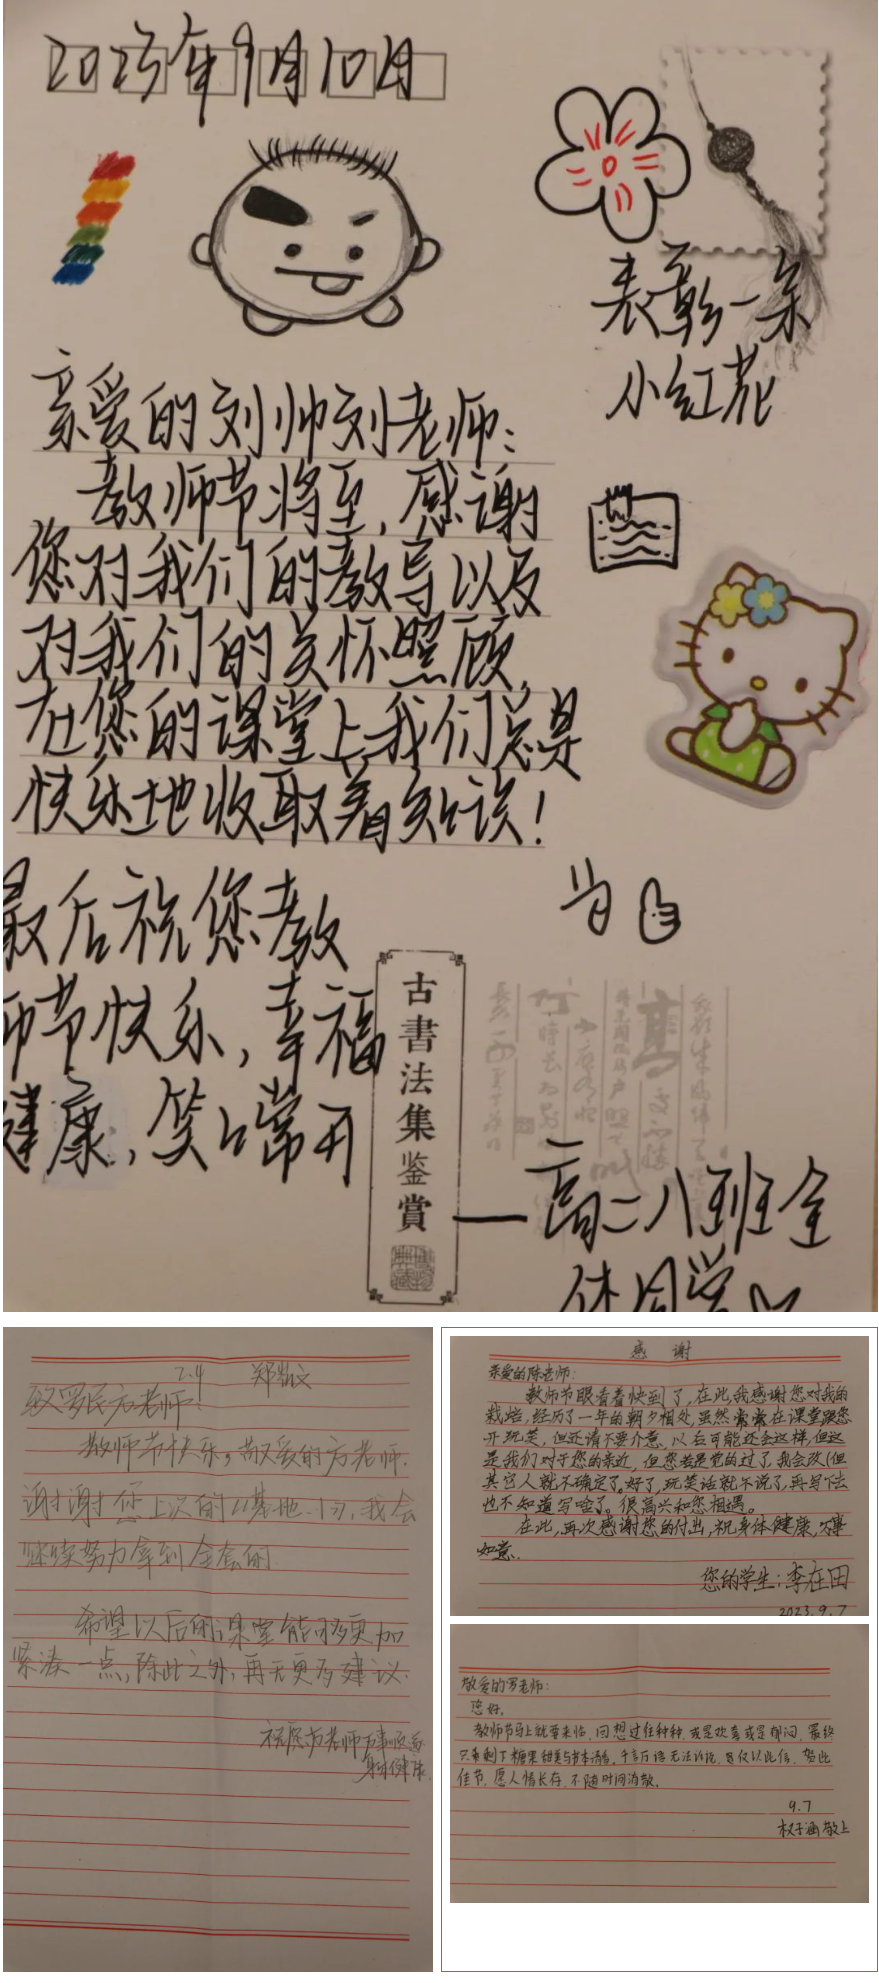 2023年9月10日
表彰一朵
小红花
亲爱的刘帅刘老师:
教师节将至,感谢
您对我们的教导以及
对我们的关怀照顾,
在您的课堂上我们总是
快乐地收取着知识!
最后祝您教
师节快乐,幸福
健康,笑口常开
古書法集鉴賞
——高二八班全
体同学
2.4 郑
教师节快乐,敬爱的方老师.
谢谢您上次的
继续努力拿到全套的
希望以后的课堂能够更加
紧凑一点,除此之外,再无更多建议.
祝愿方老师万事顺意
身体健康.
感 谢
亲爱的陈老师:
教师节眼看着快到了,在此,我感谢您对我的
栽培,经历了一年的朝夕相处,虽然常常在课堂跟您
开玩笑,但还请不要介意,以后可能还会这样,但这
是我们对于您的亲近,但您若是觉的过了,我会改(但
其它人就不确定了。好了,玩笑话就不说了,再写下去
也不知道写啥了。很高兴和您相遇。
在此,再次感谢您的付出,祝身体健康,万事
如意.
您的学生:李在田
2023.9.7
敬爱的罗老师:
您好,
教师节马上就要来临,回想过往种种,或是欢喜或是郁闷,最终
只剩下糖果甜美与书本清香,千言万语无法诉说,仅以此信,贺此
佳节,愿人情长存,不随时间消散。
9.7
权子涵敬上